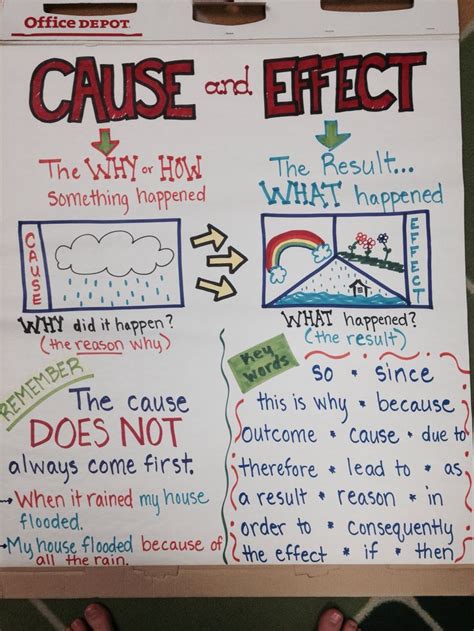 Office DEPOT
CAUSE and EFFECT
The WHY or HOW
something happened
The Result...
WHAT happened
CAUSE
EFFECT
WHY did it happen?
(the reason why)
WHAT happened?
(the result)
REMEMBER
The cause
DOES NOT
always come first.
→When it rained my house
flooded.
→My house flooded because of
all the rain.
Key
Words
so * since
this is why * because
outcome * cause * due to
therefore * lead to * as
a result * reason * in
order to * consequently
the effect * if * then